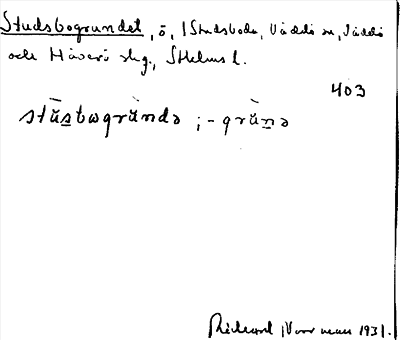 Studsbogrundet, ö, / Studsboda, Väddö sn, Väddö
och Häverö skg., Sthlms l.
403
stŭsbωgrŭndə ; -grŭnə
Rickard 1931.